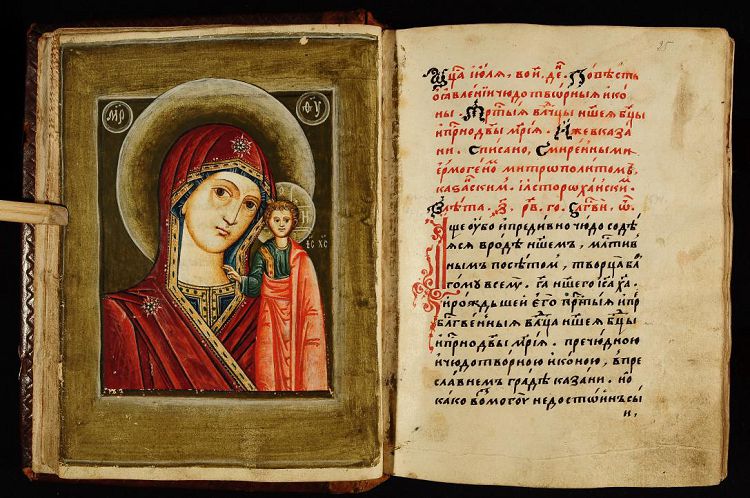 МР ѲУ
ІС ХС
25
Мц͠а їюлѧ, вой, де͠. Повѣсть
ѡ ꙗвленїи чюдотворныѧ ико
ны. Пр͠тыѧ влⷣцы нш͠еѧ бцы
и приодв͠ы мр͠їѧ. Иже вказа
ни. Списано, Смиренными
ермогено митрополитомъ,
каꙁаским. їасторѡханскїи.
Влѣта, ҂З. рв͠. го. Бл͠гви, ѿ.
Іще оубо и предивно чюдо содѣ
ѧсѧ вродѣ нш͠емъ, мл͠тив
нымъ посѣтомъ, творца бл͠
гому всему. га͠ ншего і͠са х͠а.
И рождьшеи его пр͠тыѧ и пр
бл͠гвеныѧ влⷣца нш͠еѧ бцы
и приодв͠ы мр͠їѧ. пречюдною
и чюдотворною иконою, впре
славнемъ градѣ каꙁани. Но
како воꙁмогоу недостоинъ сы
и.